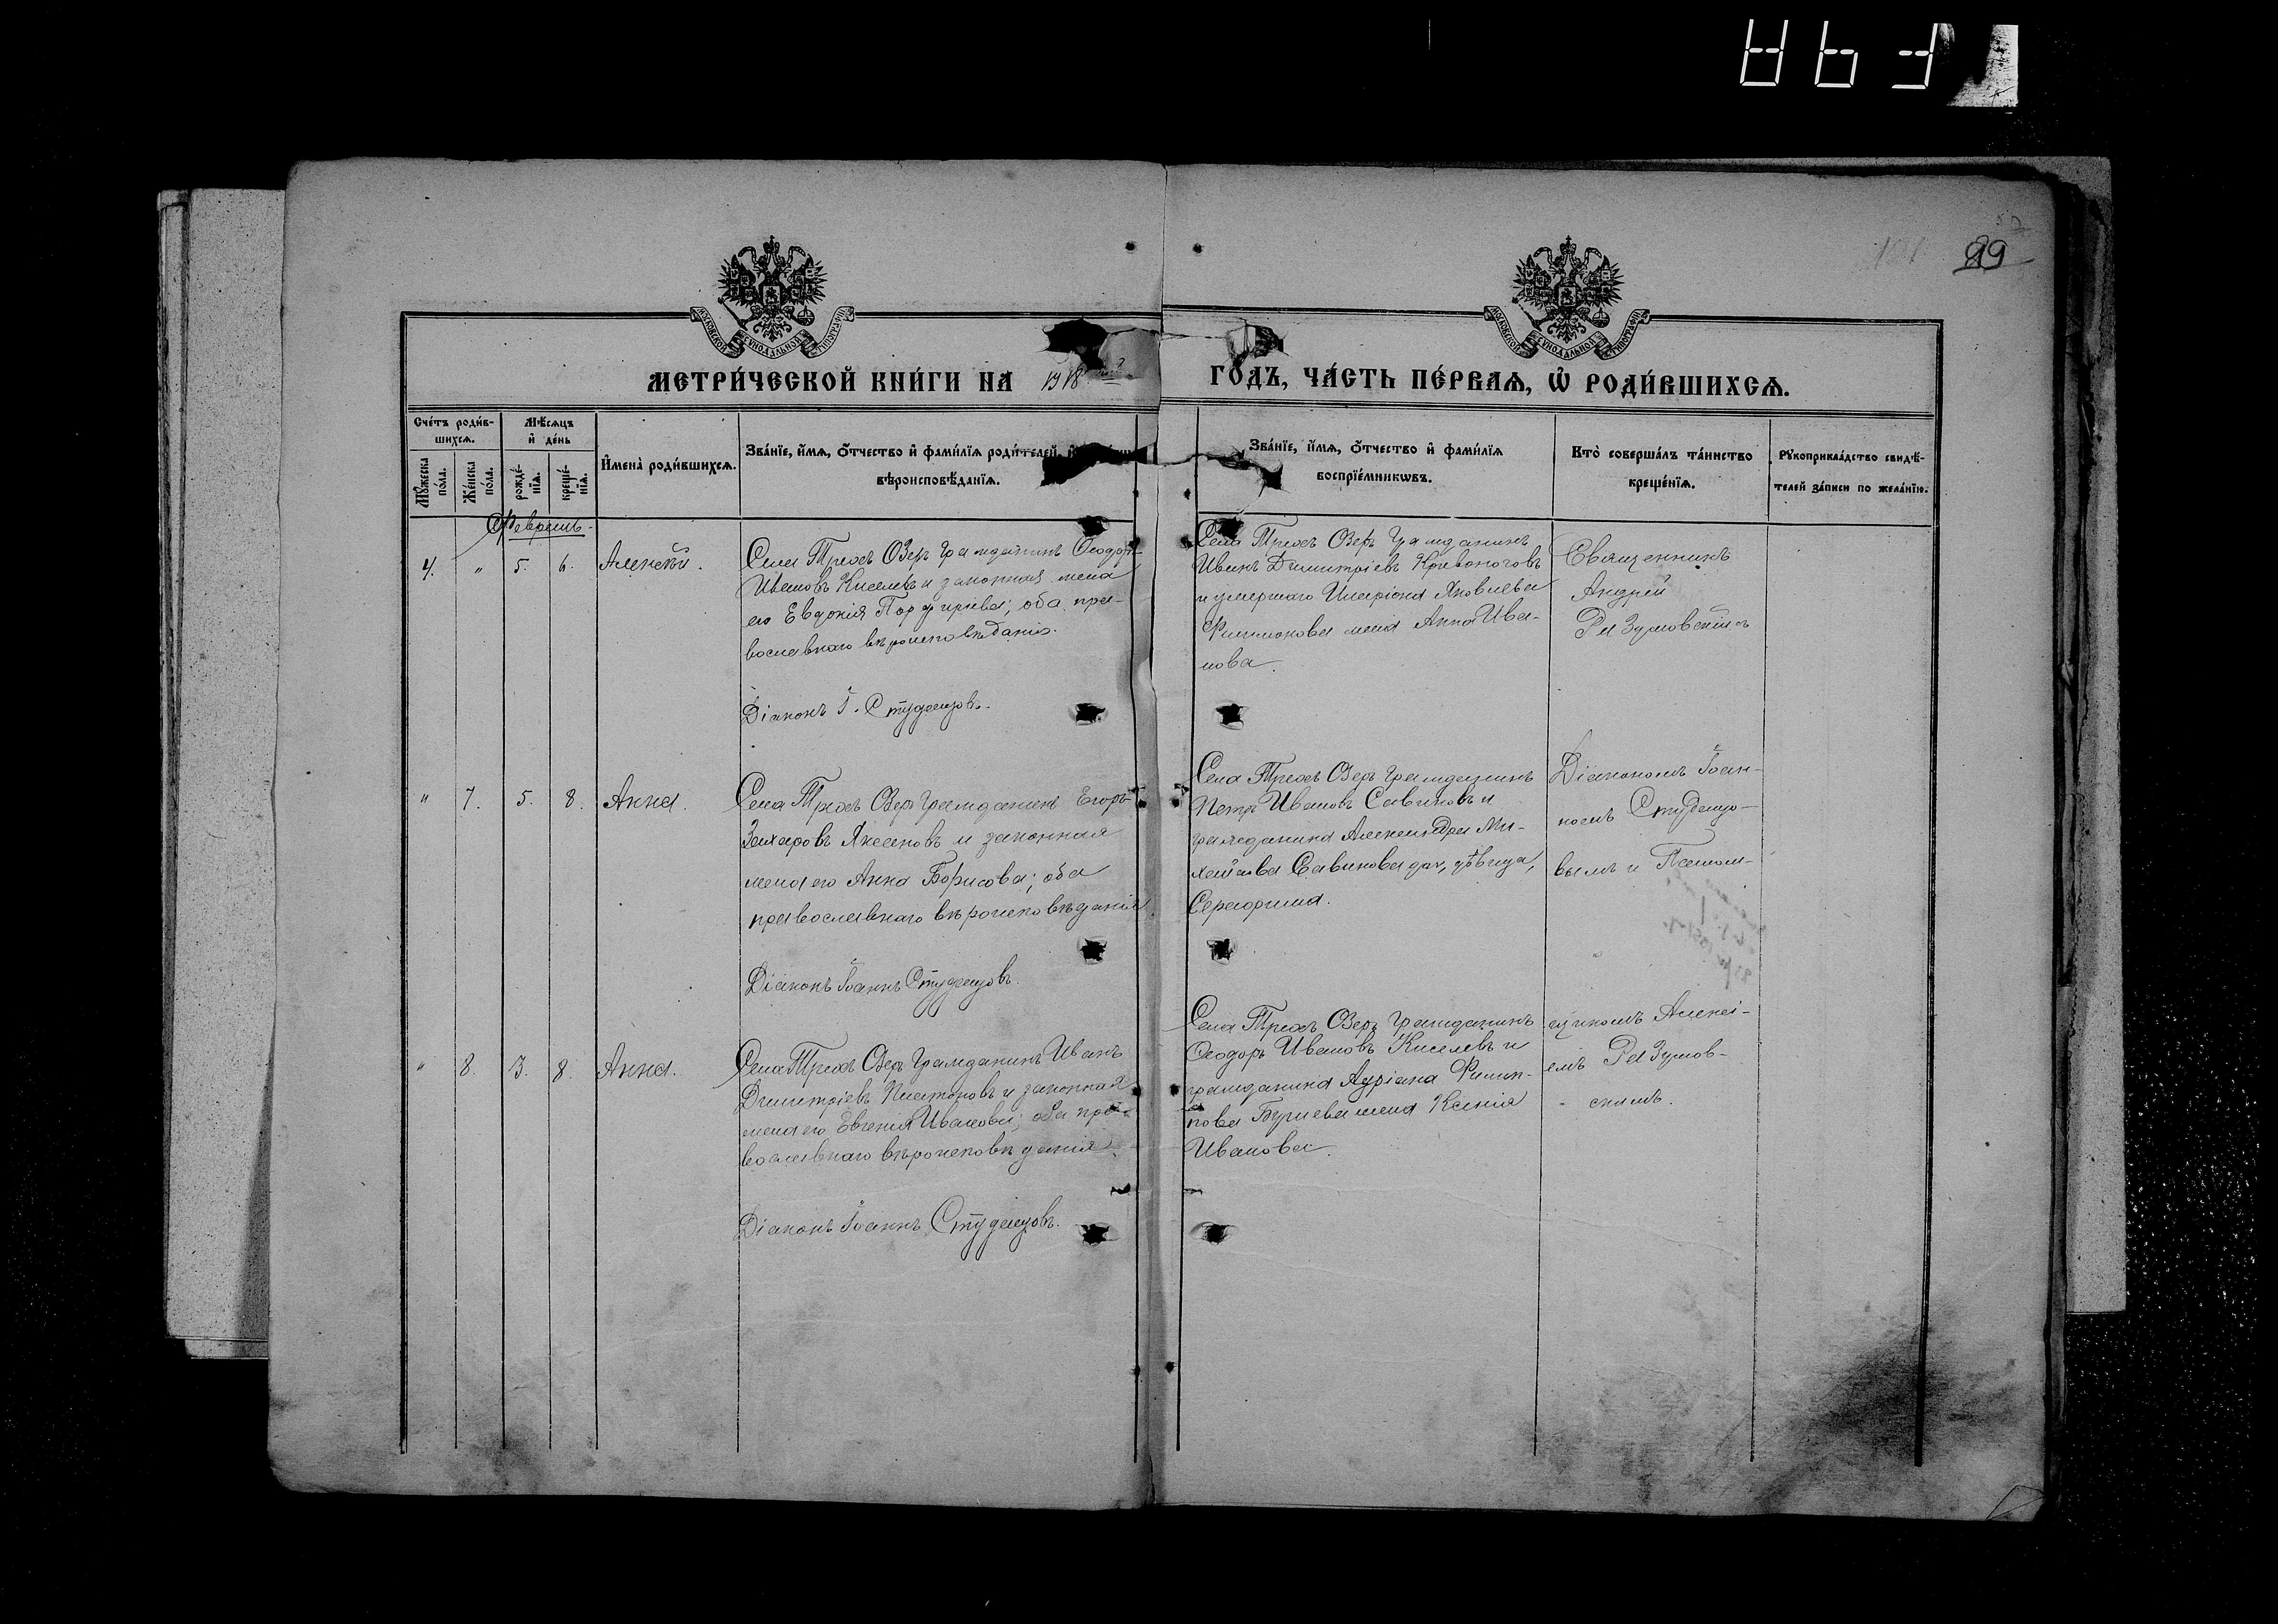 99
МЕТРИ́ЧЕСКОЙ КНИ́ГИ НА 1918
ГО́ДЪ, ЧА́СТЬ ПЕ́РВАѦ, Ѽ РОДИ́ВШИХСѦ.
МОСКОВСКОЙ СѴНОДАЛЬНОЙ ТИПОГРАФІИ
МОСКОВСКОЙ СѴНОДАЛЬНОЙ ТИПОГРАФІИ
Сче́тъ роди́в-
шихсѧ.
Мꙋ́жеска по́ла.
Же́нска по́ла.
Мѣ́сѧцъ
и҆ де́нь
рожде́-
нїѧ.
креще́-
нїѧ.
И҆мена̀ роди́вшихсѧ.
Зва́нїе, и҆́мѧ, ѻ҆́тчество и҆ фами́лїѧ роди́телей,
вѣроисповѣ́данїѧ.
Зва́нїе, и҆́мѧ, ѻ҆́тчество и҆ фами́лїѧ
воспрїе́мникѡвъ.
Кто̀ соверша́лъ та́инство
креще́нїѧ.
Рꙋкоприкла́дство свидѣ́-
телей за́писи по жела́нїю.
Февраль.
4. " 5. 6. Алексѣй.
Села Трехъ Озеръ гражданинъ Ѳеодоръ
Ивановъ Киселевъ и законная жена
его Евдокія Порфирьева; оба пра-
вославнаго вѣроисповѣданія.
Діаконъ І. Студенцовъ.
Села Трехъ Озеръ гражданинъ
Иванъ Димитріевъ Кривоноговъ
и умершаго Иларіона Яковлева
Филимонова жена Анна Ива-
нова.
Священникъ
Андрей
Разумовскій
" 7. 5. 8. Анна.
Села Трехъ Озеръ гражданинъ Егоръ
Захаровъ Аксеновъ и законная
жена его Анна Борисова; оба
православнаго вѣроисповѣданія.
Діаконъ Іоаннъ Студенцовъ.
Села Трехъ Озеръ гражданинъ
Петръ Ивановъ Савиновъ и
гражданина Александра Ми-
хайлова Савинова доч, дѣвица,
Серафима.
Діакономъ Іоан-
номъ Студенцо-
вымъ и Псалом-
" 8. 3. 8. Анна.
Села Трехъ Озеръ гражданинъ Иванъ
Димитріевъ Платоновъ и законная
жена его Евгенія Иванова; оба пра-
вославнаго вѣроисповѣданія.
Діаконъ Іоаннъ Студенцовъ.
Села Трехъ Озеръ гражданинъ
Ѳеодоръ Ивановъ Киселевъ и
гражданина Адріана Филип-
пова Бурнева жена Ксенія
Иванова.
щикомъ Алексі-
емъ Разумов-
- скимъ.